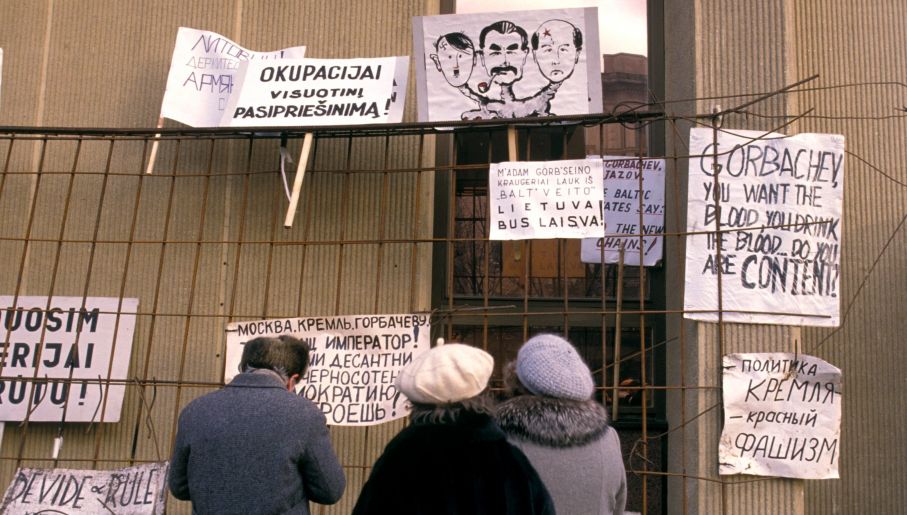 ЛИТОВ
ДЕРЖИТЕ
АРМЯ
OKUPACIJAI
VISUOTINĮ
PASIPRIEŠINIMĄ!
M'ADAM GORB'SEINO
KRAUGERIAI LAUK IŠ
„BALT' VEITO"
LIETUVA
BUS LAISVA!
GORBACHEV,
JAZOV,
BALTIC
TATES SAY:
THE NEW
CHAINS!
GORBACHEV,
YOU WANT THE
BLOOD, YOU DRINK
THE BLOOD... DO YOU
ARE CONTENT!
UOSIM
ERIJAI
RUDU!
МОСКВА, КРЕМЛЬ, ГОРБАЧЕВУ.
ИМПЕРАТОР!
МИ ДЕСАНТНИ
ЧЕРНОСОТЕН
МОКРАТИЮ
РОЕШЬ!
ПОЛИТИКА
КРЕМЛЯ
– КРАСНЫЙ
ФАШИЗМ
DEVIDE & RULE